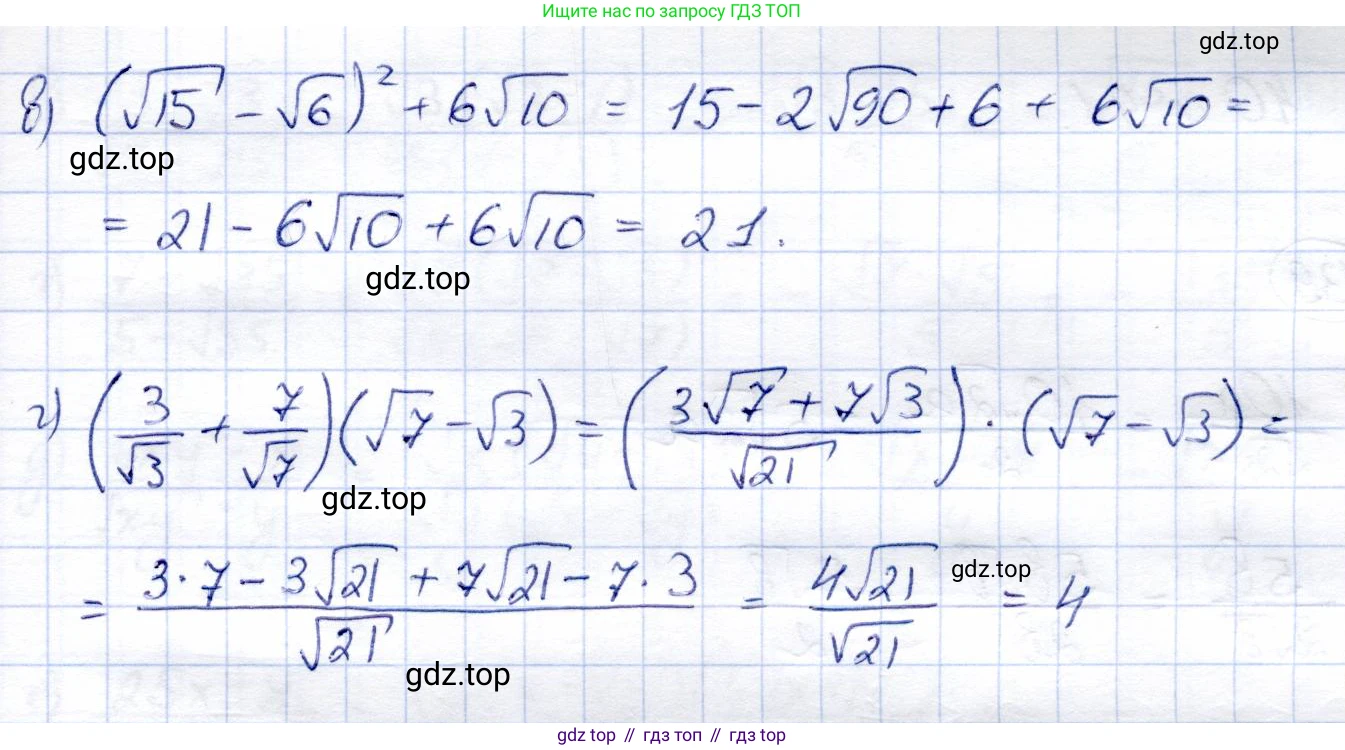 Ищите нас по запросу ГДЗ ТОП
gdz.top
в) (√15 - √6)² + 6√10 = 15 - 2√90 + 6 + 6√10 =
gdz.top
= 21 - 6√10 + 6√10 = 21.
gdz.top
г) (3/√3 + 7/√7)(√7 - √3) = ((3√7 + 7√3)/√21) · (√7 - √3) =
gdz.top
= (3·7 - 3√21 + 7√21 - 7·3)/√21 = 4√21/√21 = 4
gdz.top
gdz.top
gdz top // гдз топ // гдз top